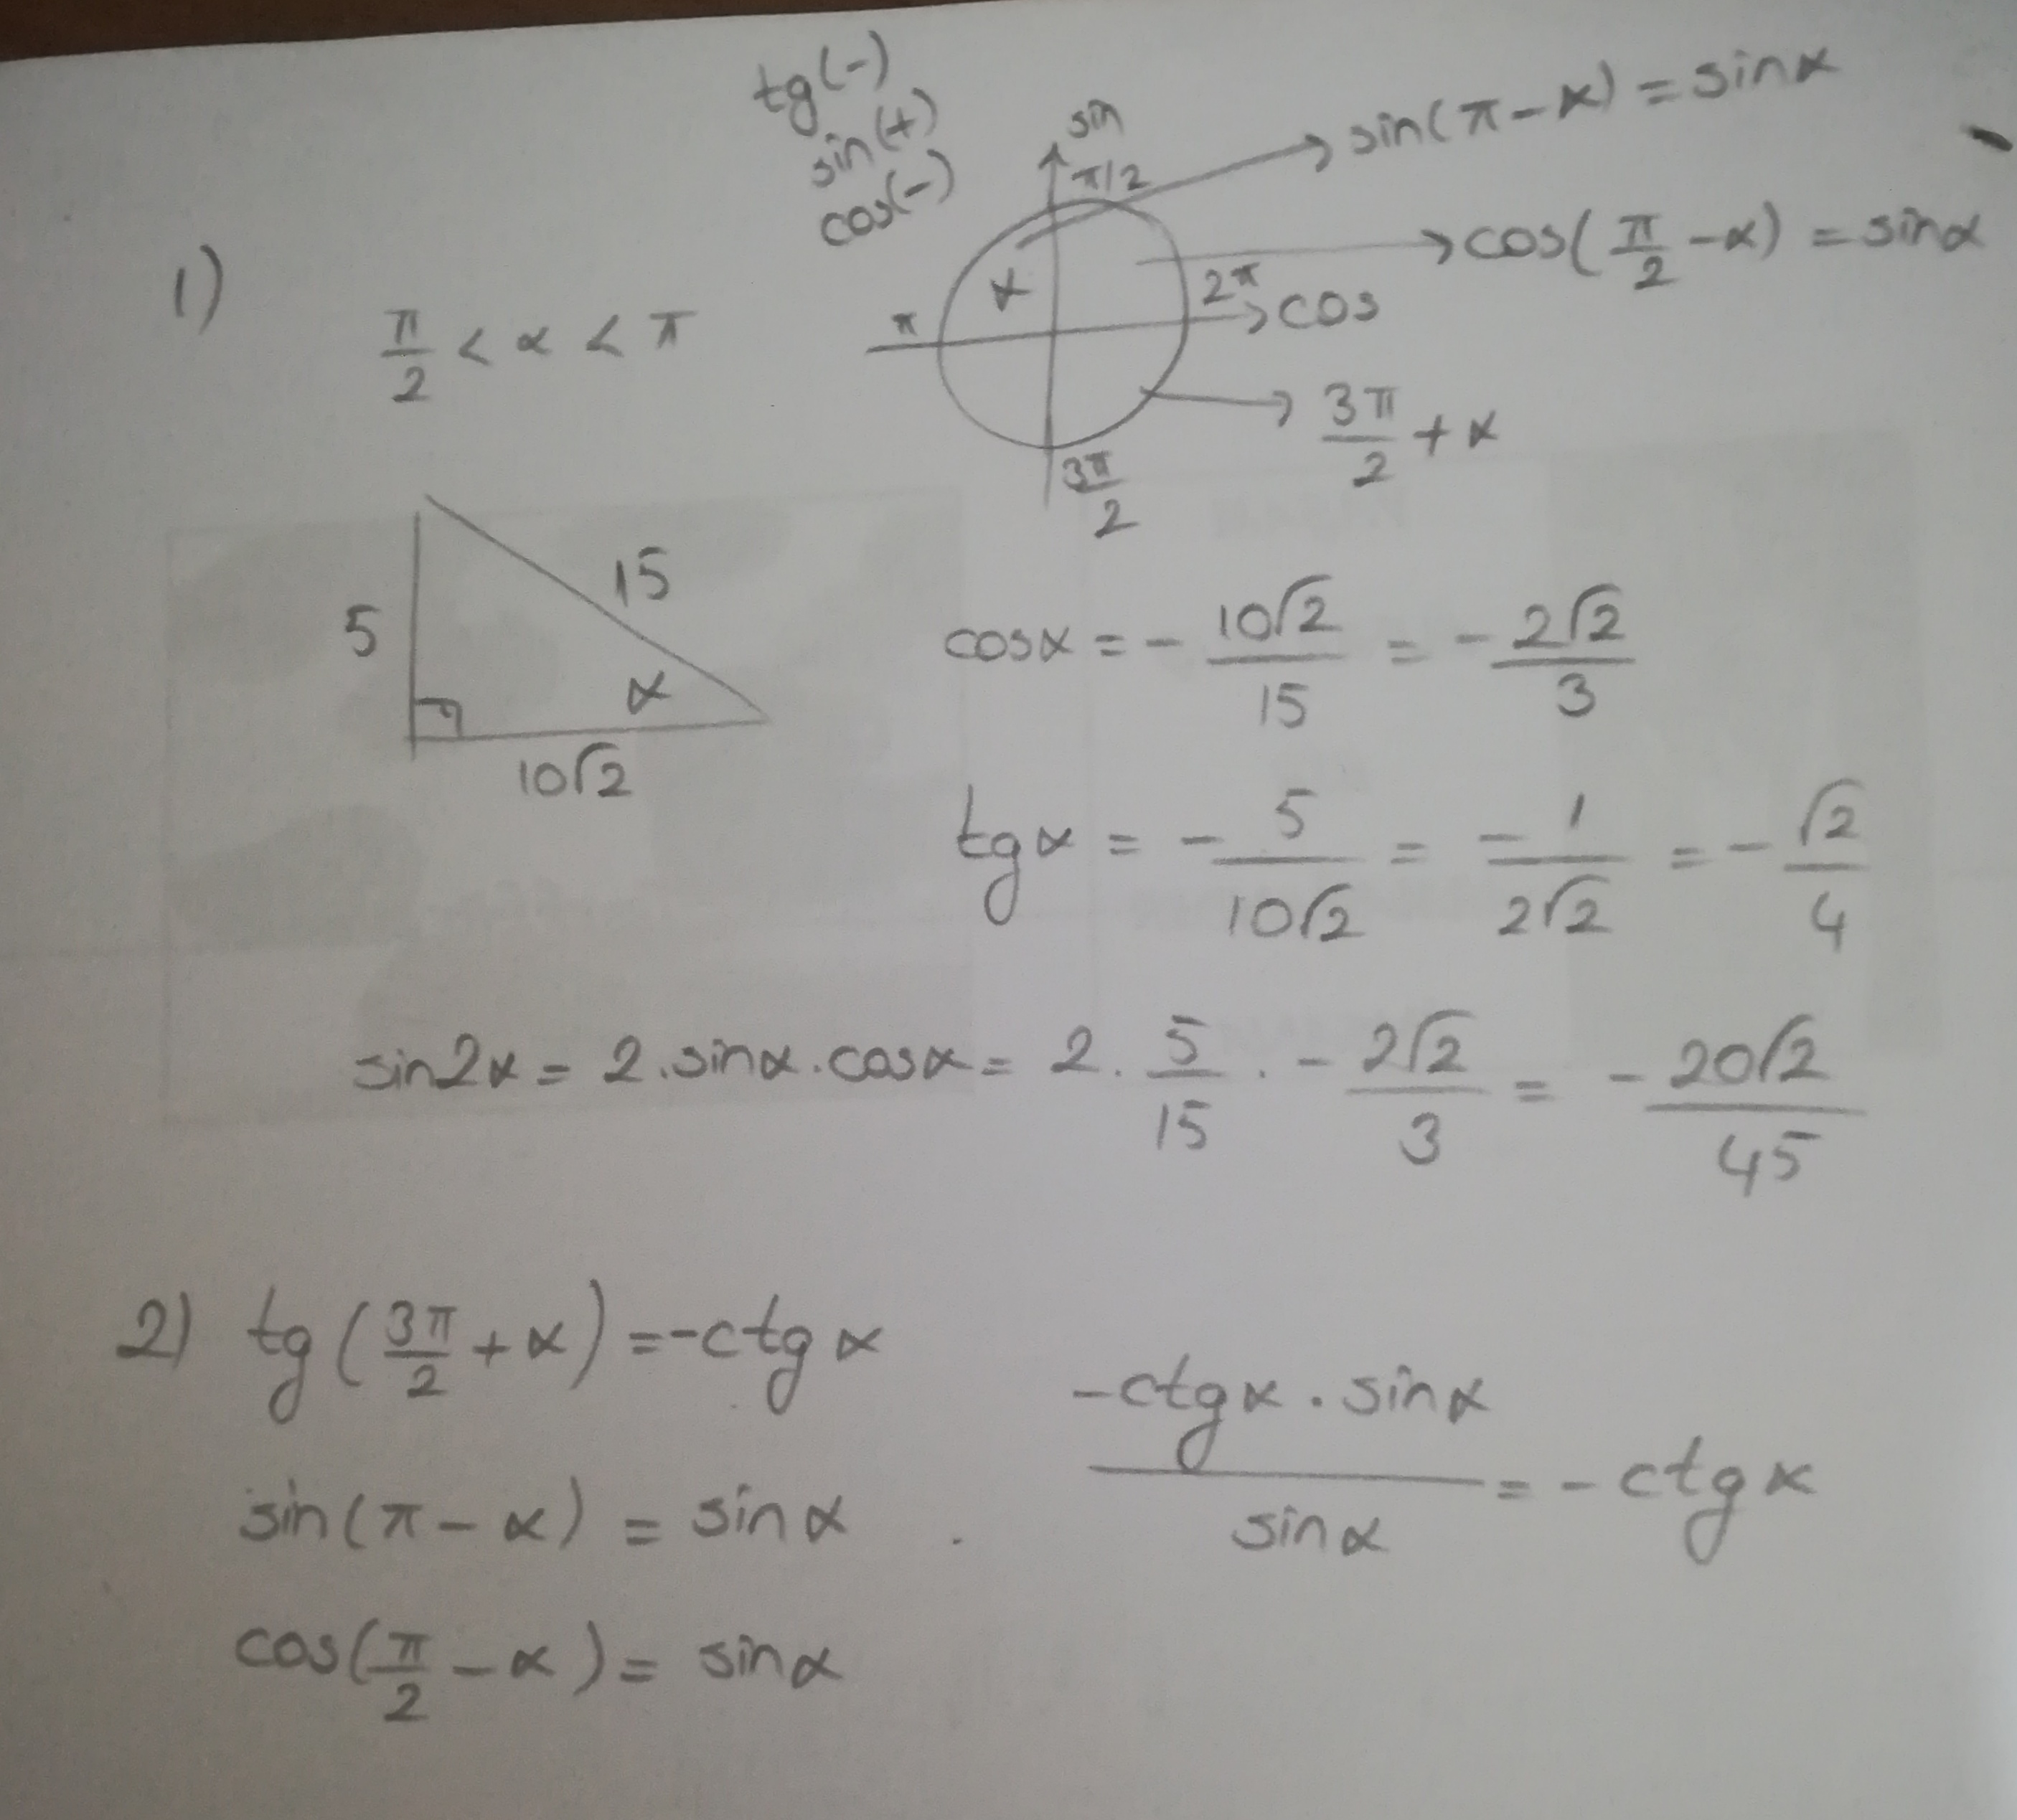 tg(-)
sin(+)
cos(-)
sin
π/2
sin(π-α) = sinα
cos(π/2 -α) = sinα
1)
π/2 < α < π
α
π
2π
cos
3π/2
3π/2 + α
5
15
α
10√2
cosα = - 10√2/15 = - 2√2/3
tgα = - 5/10√2 = - 1/2√2 = - √2/4
sin2α = 2.sinα.cosα = 2. 5/15 . - 2√2/3 = - 20√2/45
2) tg(3π/2 + α) = -ctgα
sin(π - α) = sinα
cos(π/2 - α) = sinα
-ctgα . sinα / sinα = - ctgα